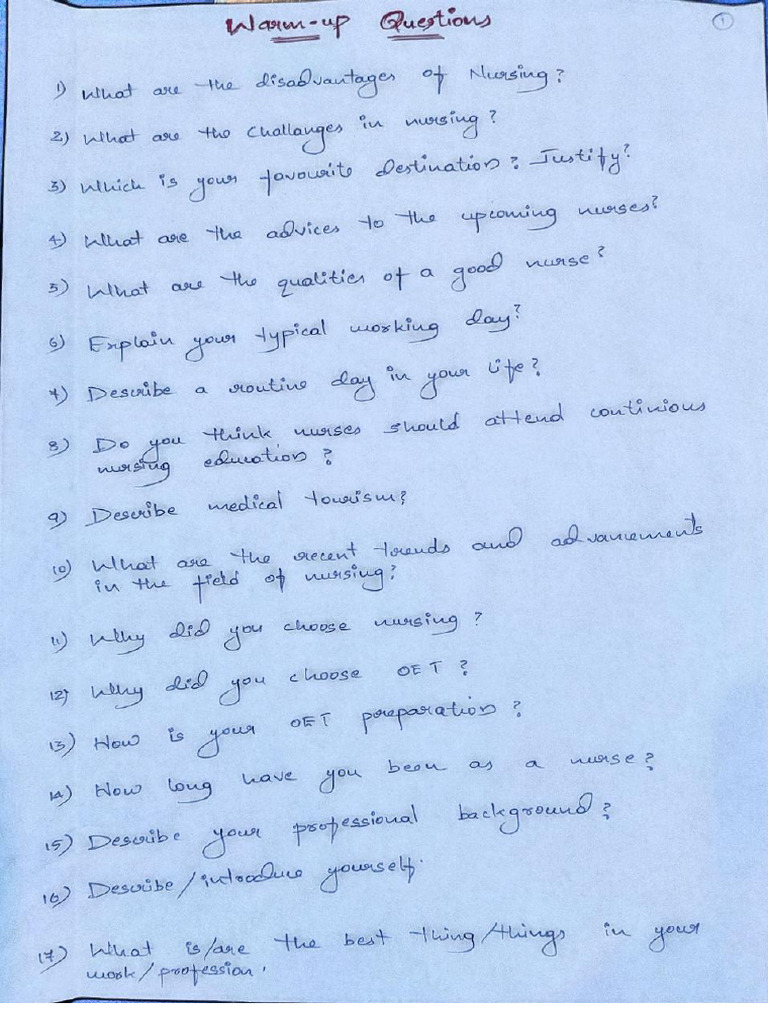 Warm-up Questions
1
1) What are the disadvantages of Nursing?
2) What are the challanges in nursing?
3) Which is your favourite destination? Justify?
4) What are the advices to the upcoming nurses?
5) What are the qualities of a good nurse?
6) Explain your typical working day?
7) Describe a routine day in your life?
8) Do you think nurses should attend continious
nursing education?
9) Describe medical tourism?
10) What are the recent trends and advancements
in the field of nursing?
11) Why did you choose nursing?
12) Why did you choose OET?
13) How is your OET preparation?
14) How long have you been as a nurse?
15) Describe your professional background?
16) Describe/introduce yourself.
17) What is/are the best thing/things in your
work/profession.